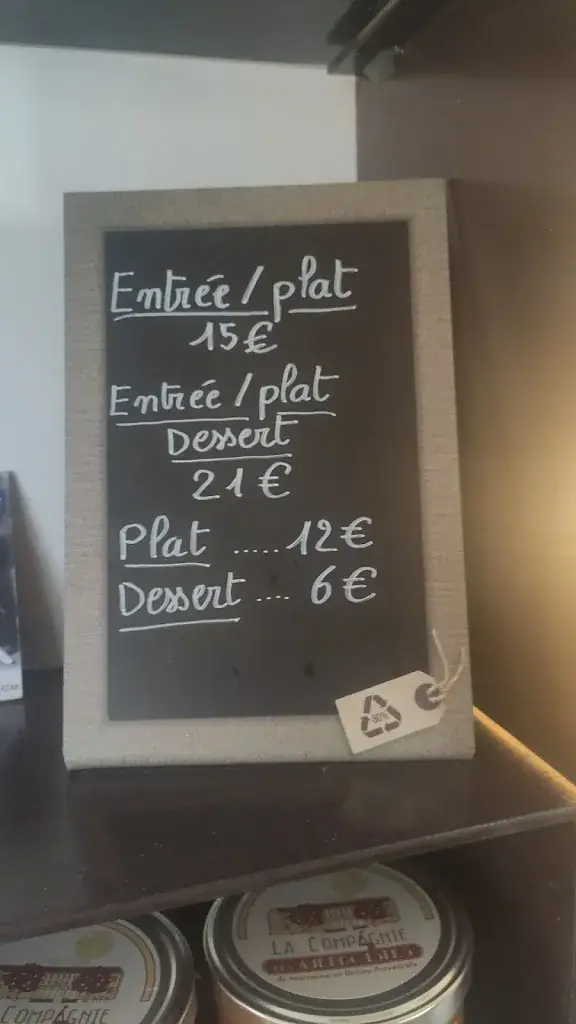 Entrée / plat
15€
Entrée / plat
Dessert
21€
Plat ..... 12€
Dessert .... 6€
80%
LA COMPAGNIE
COMPAGNIE